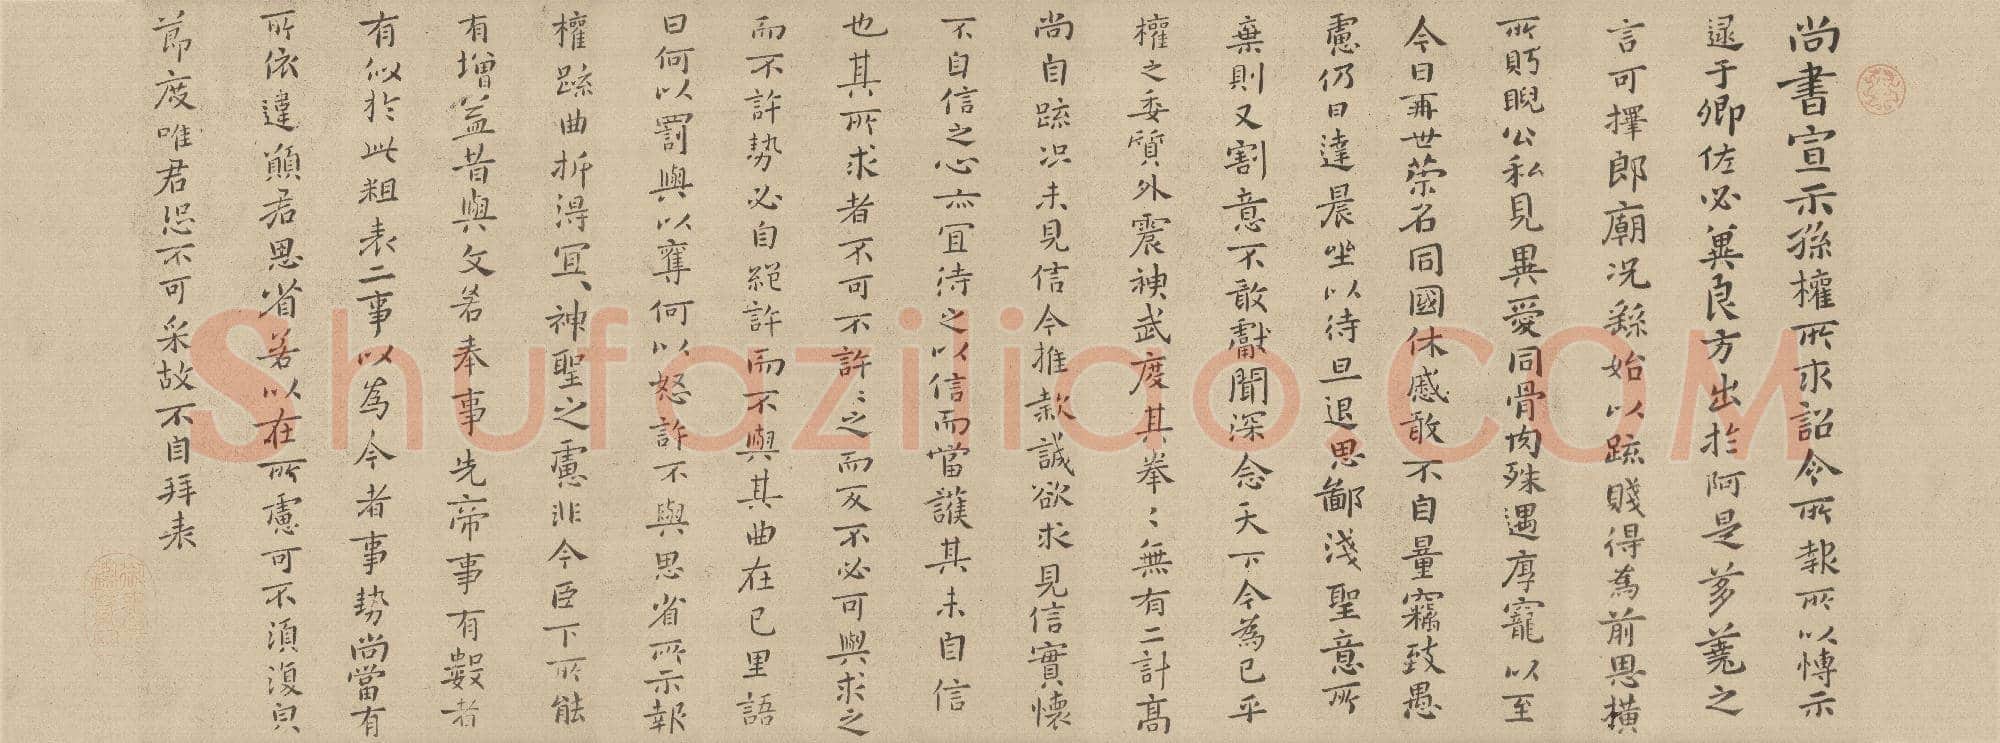 尚書宣示孫權所求詔令所報所以博示
逮于卿佐必冀良方出於阿是芻蕘之
言可擇郎廟況繇始以疏賤得為前恩橫
所眄睨公私見異愛同骨肉殊遇厚寵以至
今日再世榮名同國休慼敢不自量竊致愚
慮仍日達晨坐以待旦退思鄙淺聖意所
棄則又割意不敢獻聞深念天下今為已平
權之委質外震神武度其拳〻無有二計高
尚自疏況未見信今推款誠欲求見信實懷
不自信之心亦宜待之以信而當護其未自信
也其所求者不可不許〻之而反不必可與求之
而不許勢必自絕許而不與其曲在己里語
曰何以罰與以奪何以怒許不與思省所示報
權疏曲折得宜神聖之慮非今臣下所能
有增益昔與文若奉事先帝事有數者
有似於此粗表二事以為今者事勢尚當有
所依違願君思省若以在所慮可不須復皃
節度唯君恐不可采故不自拜表
Shufaziliao.COM